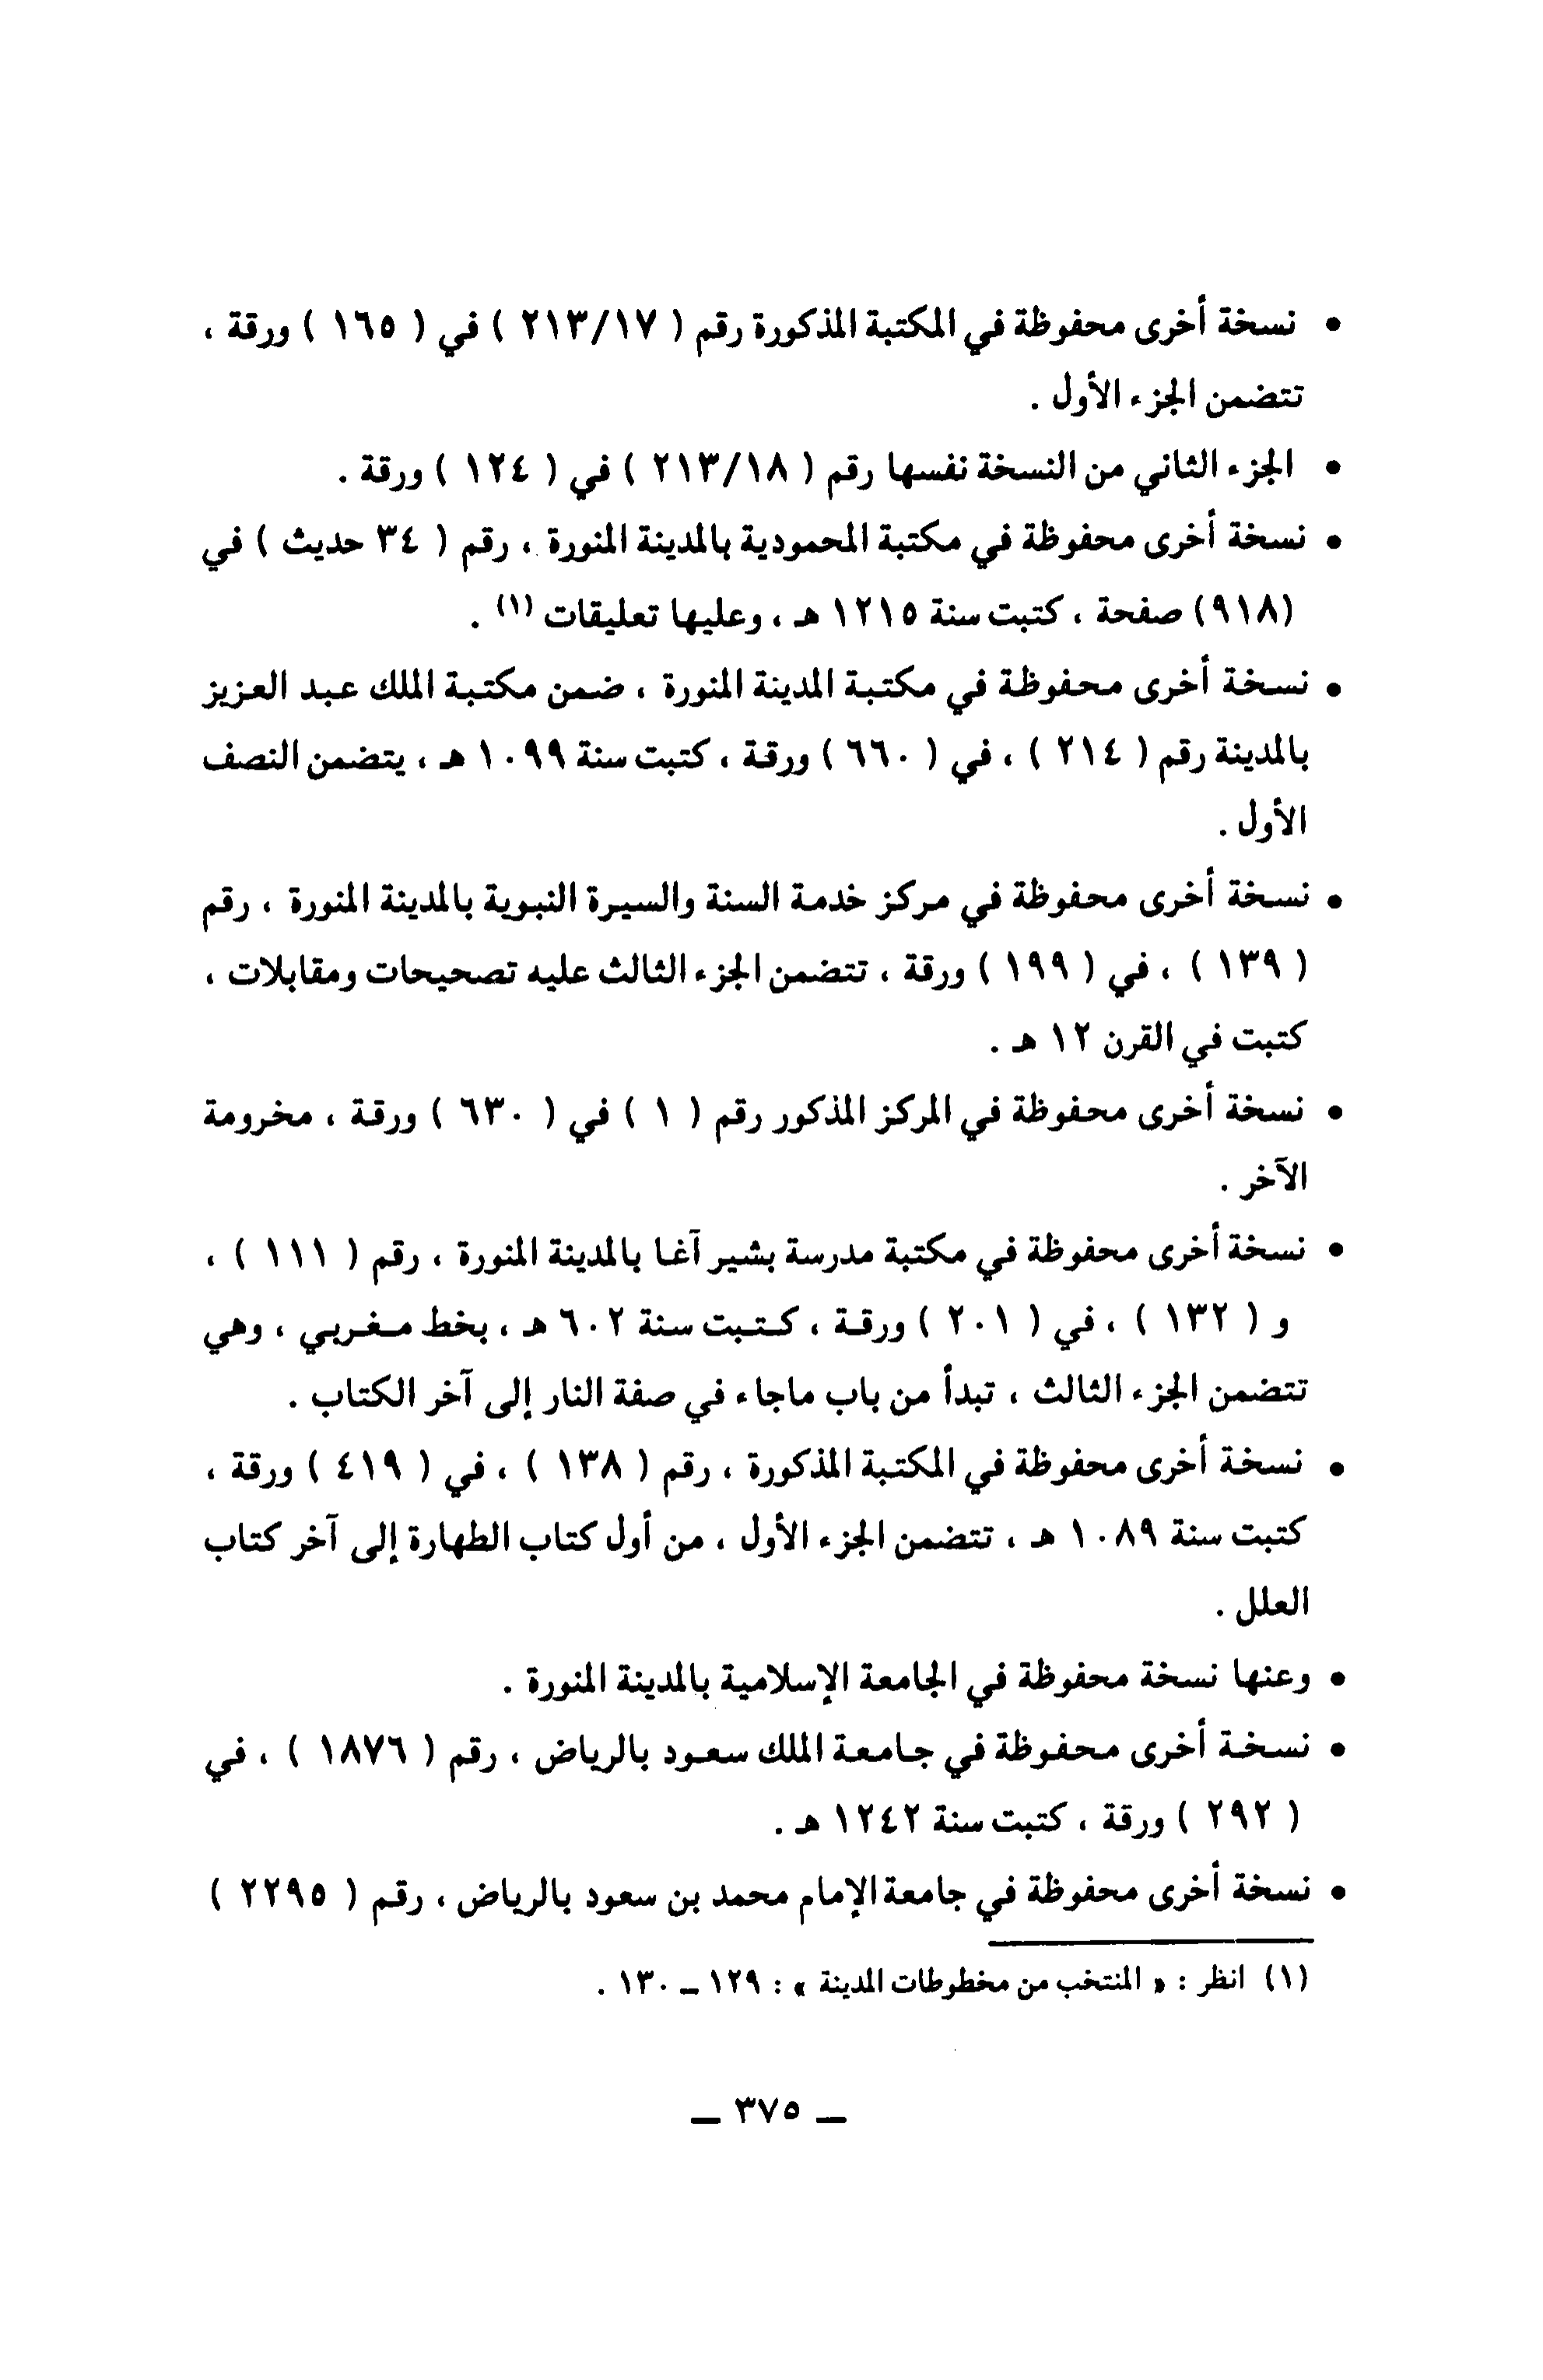 • نسخة أخرى محفوظة في المكتبة المذكورة رقم ( ٢١٣/١٧ ) في ( ١٦٥ ) ورقة ،
تتضمن الجزء الأول .
• الجزء الثاني من النسخة نفسها رقم ( ٢١٣/١٨ ) في ( ١٢٤ ) ورقة .
• نسخة أخرى محفوظة في مكتبة المحمودية بالمدينة المنورة ، رقم ( ٣٤ حديث ) في
(٩١٨) صفحة ، كتبت سنة ١٢١٥ هـ ، وعليها تعليقات (١) .
• نسخة أخرى محفوظة في مكتبة المدينة المنورة ، ضمن مكتبة الملك عبد العزيز
بالمدينة رقم ( ٢١٤ ) ، في ( ٦٦٠ ) ورقة ، كتبت سنة ١٠٩٩ هـ ، يتضمن النصف
الأول .
• نسخة أخرى محفوظة في مركز خدمة السنة والسيرة النبوية بالمدينة المنورة ، رقم
( ١٣٩ ) ، في ( ١٩٩ ) ورقة ، تتضمن الجزء الثالث عليه تصحيحات ومقابلات ،
كتبت في القرن ١٢ هـ .
• نسخة أخرى محفوظة في المركز المذكور رقم ( ١ ) في ( ٦٣٠ ) ورقة ، مخرومة
الآخر .
• نسخة أخرى محفوظة في مكتبة مدرسة بشير آغا بالمدينة المنورة ، رقم ( ١١١ ) ،
و ( ١٣٢ ) ، في ( ٢٠١ ) ورقة ، كتبت سنة ٦٠٢ هـ ، بخط مغربي ، وهي
تتضمن الجزء الثالث ، تبدأ من باب ماجاء في صفة النار إلى آخر الكتاب .
• نسخة أخرى محفوظة في المكتبة المذكورة ، رقم ( ١٣٨ ) ، في ( ٤١٩ ) ورقة ،
كتبت سنة ١٠٨٩ هـ ، تتضمن الجزء الأول ، من أول كتاب الطهارة إلى آخر كتاب
العلل .
• وعنها نسخة محفوظة في الجامعة الإسلامية بالمدينة المنورة .
• نسخة أخرى محفوظة في جامعة الملك سعود بالرياض ، رقم ( ١٨٧٦ ) ، في
( ٢٩٢ ) ورقة ، كتبت سنة ١٢٤٢ هـ .
• نسخة أخرى محفوظة في جامعة الإمام محمد بن سعود بالرياض ، رقم ( ٢٢٩٥ )
(١) انظر : « المنتخب من مخطوطات المدينة » : ١٢٩ – ١٣٠ .
– ٣٧٥ –